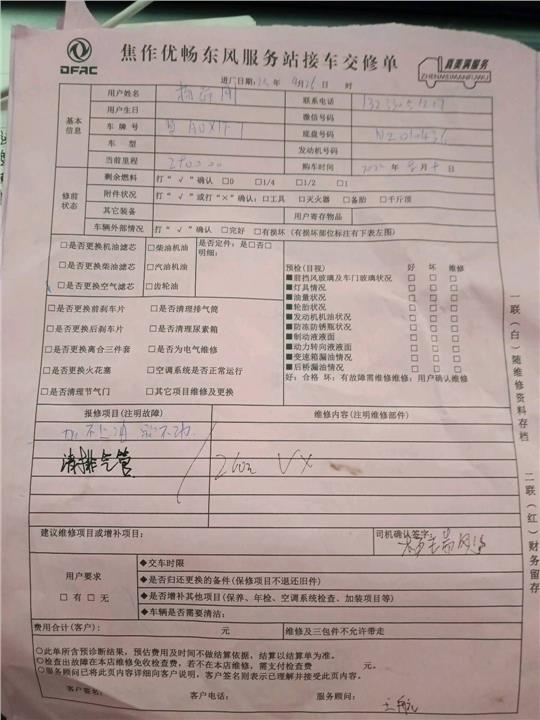 DFAC
焦作优畅东风服务站接车交修单
真美满服务
ZHENMEIMANFUWU
进厂日期: 年 9月26日 时
基本信息
用户姓名 联系电话
用户生日 微信号码
车牌号 底盘号码 N2010436
车型 发动机号码
当前里程 购车时间 年 月 日
修前状态
剩余燃料 打“√”确认 □0 □1/4 □1/2 □1
附件状况 打“√”或打“×”确认:□工具 □灭火器 □备胎 □千斤顶
其它装备 用户寄存物品
车辆外部情况 打“√”确认 □完好 □有损坏(有损坏部位标注有下表左图)
□是否更换机油滤芯 □柴油机油 是否定件:是□否□
□是否更换柴油滤芯 □汽油机油 明细:
□是否更换空气滤芯 □齿轮油
□是否更换前刹车片 □是否清理排气筒
□是否更换后刹车片 □是否清理尿素箱
□是否更换离合三件套 □是否为电气维修
□是否更换火花塞 □空调系统是否正常运行
□是否清理节气门 □其它项目维修及更换
预检(目视) 好 坏 维修
■前挡风玻璃及车门玻璃状况 □ □ □
■灯具情况 □ □ □
■油量状况 □ □ □
■轮胎状况 □ □ □
■发动机机油状况 □ □ □
■防冻防锈瓶状况 □ □ □
■制动液液面 □ □ □
■动力转向液液面 □ □ □
■变速箱漏油情况 □ □ □
■后桥漏油情况 □ □ □
好:合格 坏:有故障需维修维修:用户确认维修
报修项目(注明故障) 维修内容(注明维修部件)
加不上油
清排气管
建议维修项目或增补项目: 司机确认签字:
用户要求
□有□无
◆交车时限
◆是否归还更换的备件(保修项目不退还旧件)
◆是否增补其他项目(保养、年检、空调系统检查、加装项目等)
◆车辆是否需要清洁:
费用合计(客户): 元 维修及三包件不允许带走
○此单所含预诊断结果,预估费用及时间不做结算依据,结算以结算单为准。
○检查出故障在本店维修免收检查费,若不在本店维修,需支付检查费 元。
○服务顾问已将此页内容详细向客户说明,客户签名则表示已理解并接受此页内容。
客户签名: 客户电话: 服务顾问:
一联(白)随维修资料存档
二联(红)财务留存